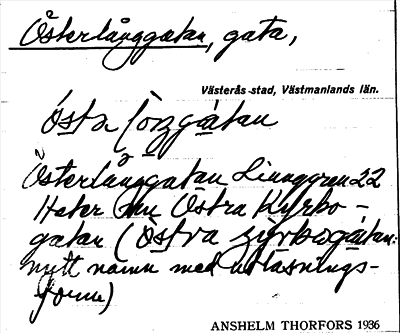 Österlånggatan, gata,
Västerås stad, Västmanlands län.
östa långgatan
Österlånggatan Linnggren 22
Heter nu Östra Kyrko-
gatan (östra çyrkogatan:
nytt namn med utläsnings-
form)
ANSHELM THORFORS 1936